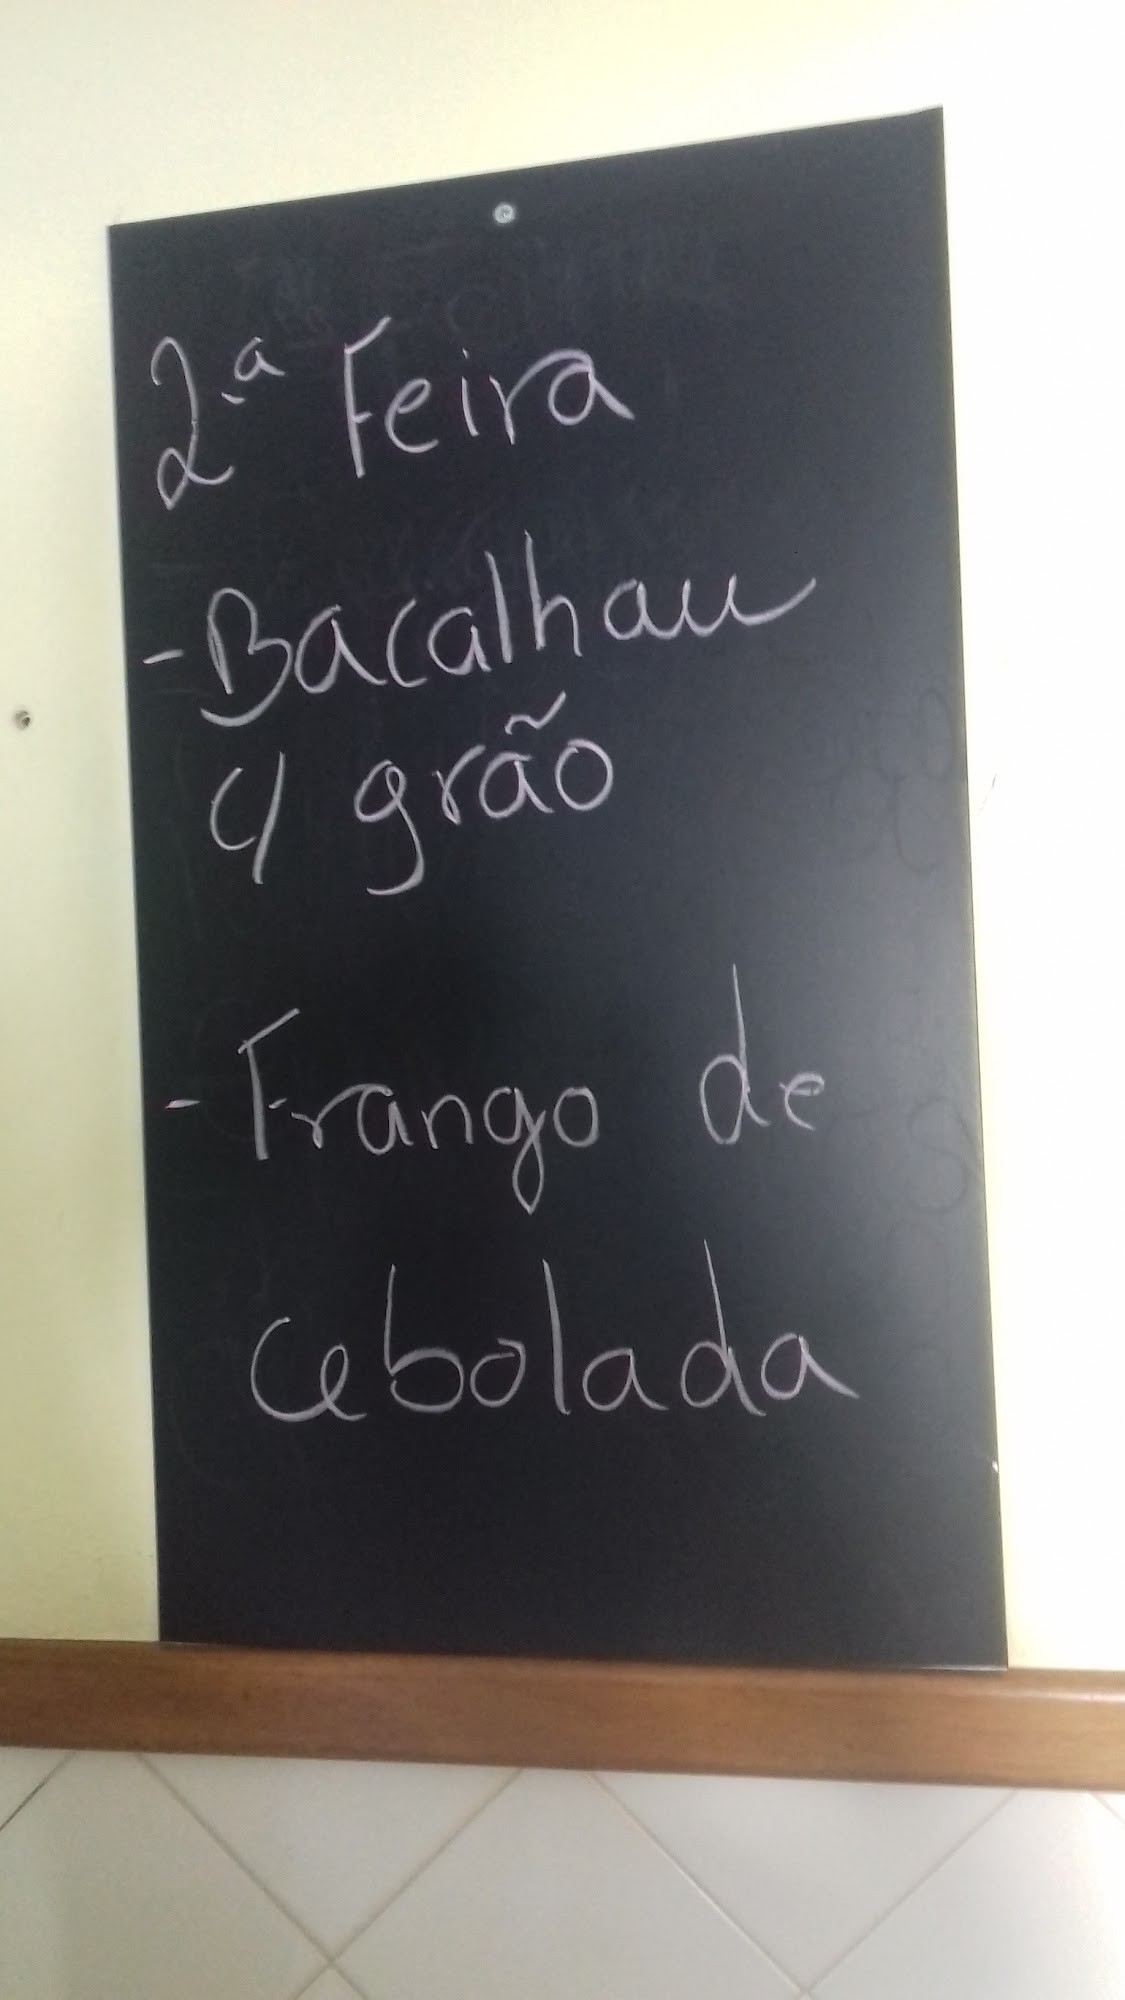 2.ª Feira
- Bacalhau
c/ grão
- Frango de
cebolada